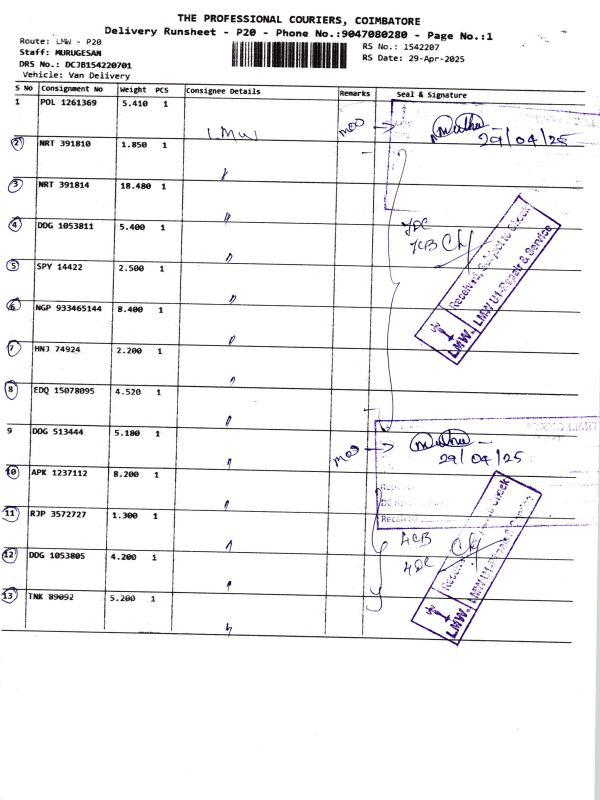 THE PROFESSIONAL COURIERS, COIMBATORE
Delivery Runsheet - P20 - Phone No.:9047080280 - Page No.:1
Route: LMW - P20
RS No.: 1542207
Staff: MURUGESAN
RS Date: 29-Apr-2025
DRS No.: DCJB154220701
Vehicle: Van Delivery
S No Consignment No Weight PCS Consignee Details Remarks Seal & Signature
1 POL 1261369 5.410 1 LMW
29/04/25
2 NRT 391810 1.850 1 "
3 NRT 391814 18.480 1 "
4 DDG 1053811 5.400 1 "
7DC
7CB
Received, Subject to Check
LMW U1-Repair & Service
LMW.
5 SPY 14422 2.500 1 "
6 NGP 933465144 8.400 1 "
7 HNJ 74924 2.200 1 "
8 EDQ 15078095 4.520 1 "
9 DDG 513444 5.180 1 "
29/04/25
10 APK 1237112 8.200 1 "
Received
11 RJP 3572727 1.300 1 "
4CB
12 DDG 1053805 4.200 1 "
4DC
13 TNK 89092 5.200 1 "
LMW.